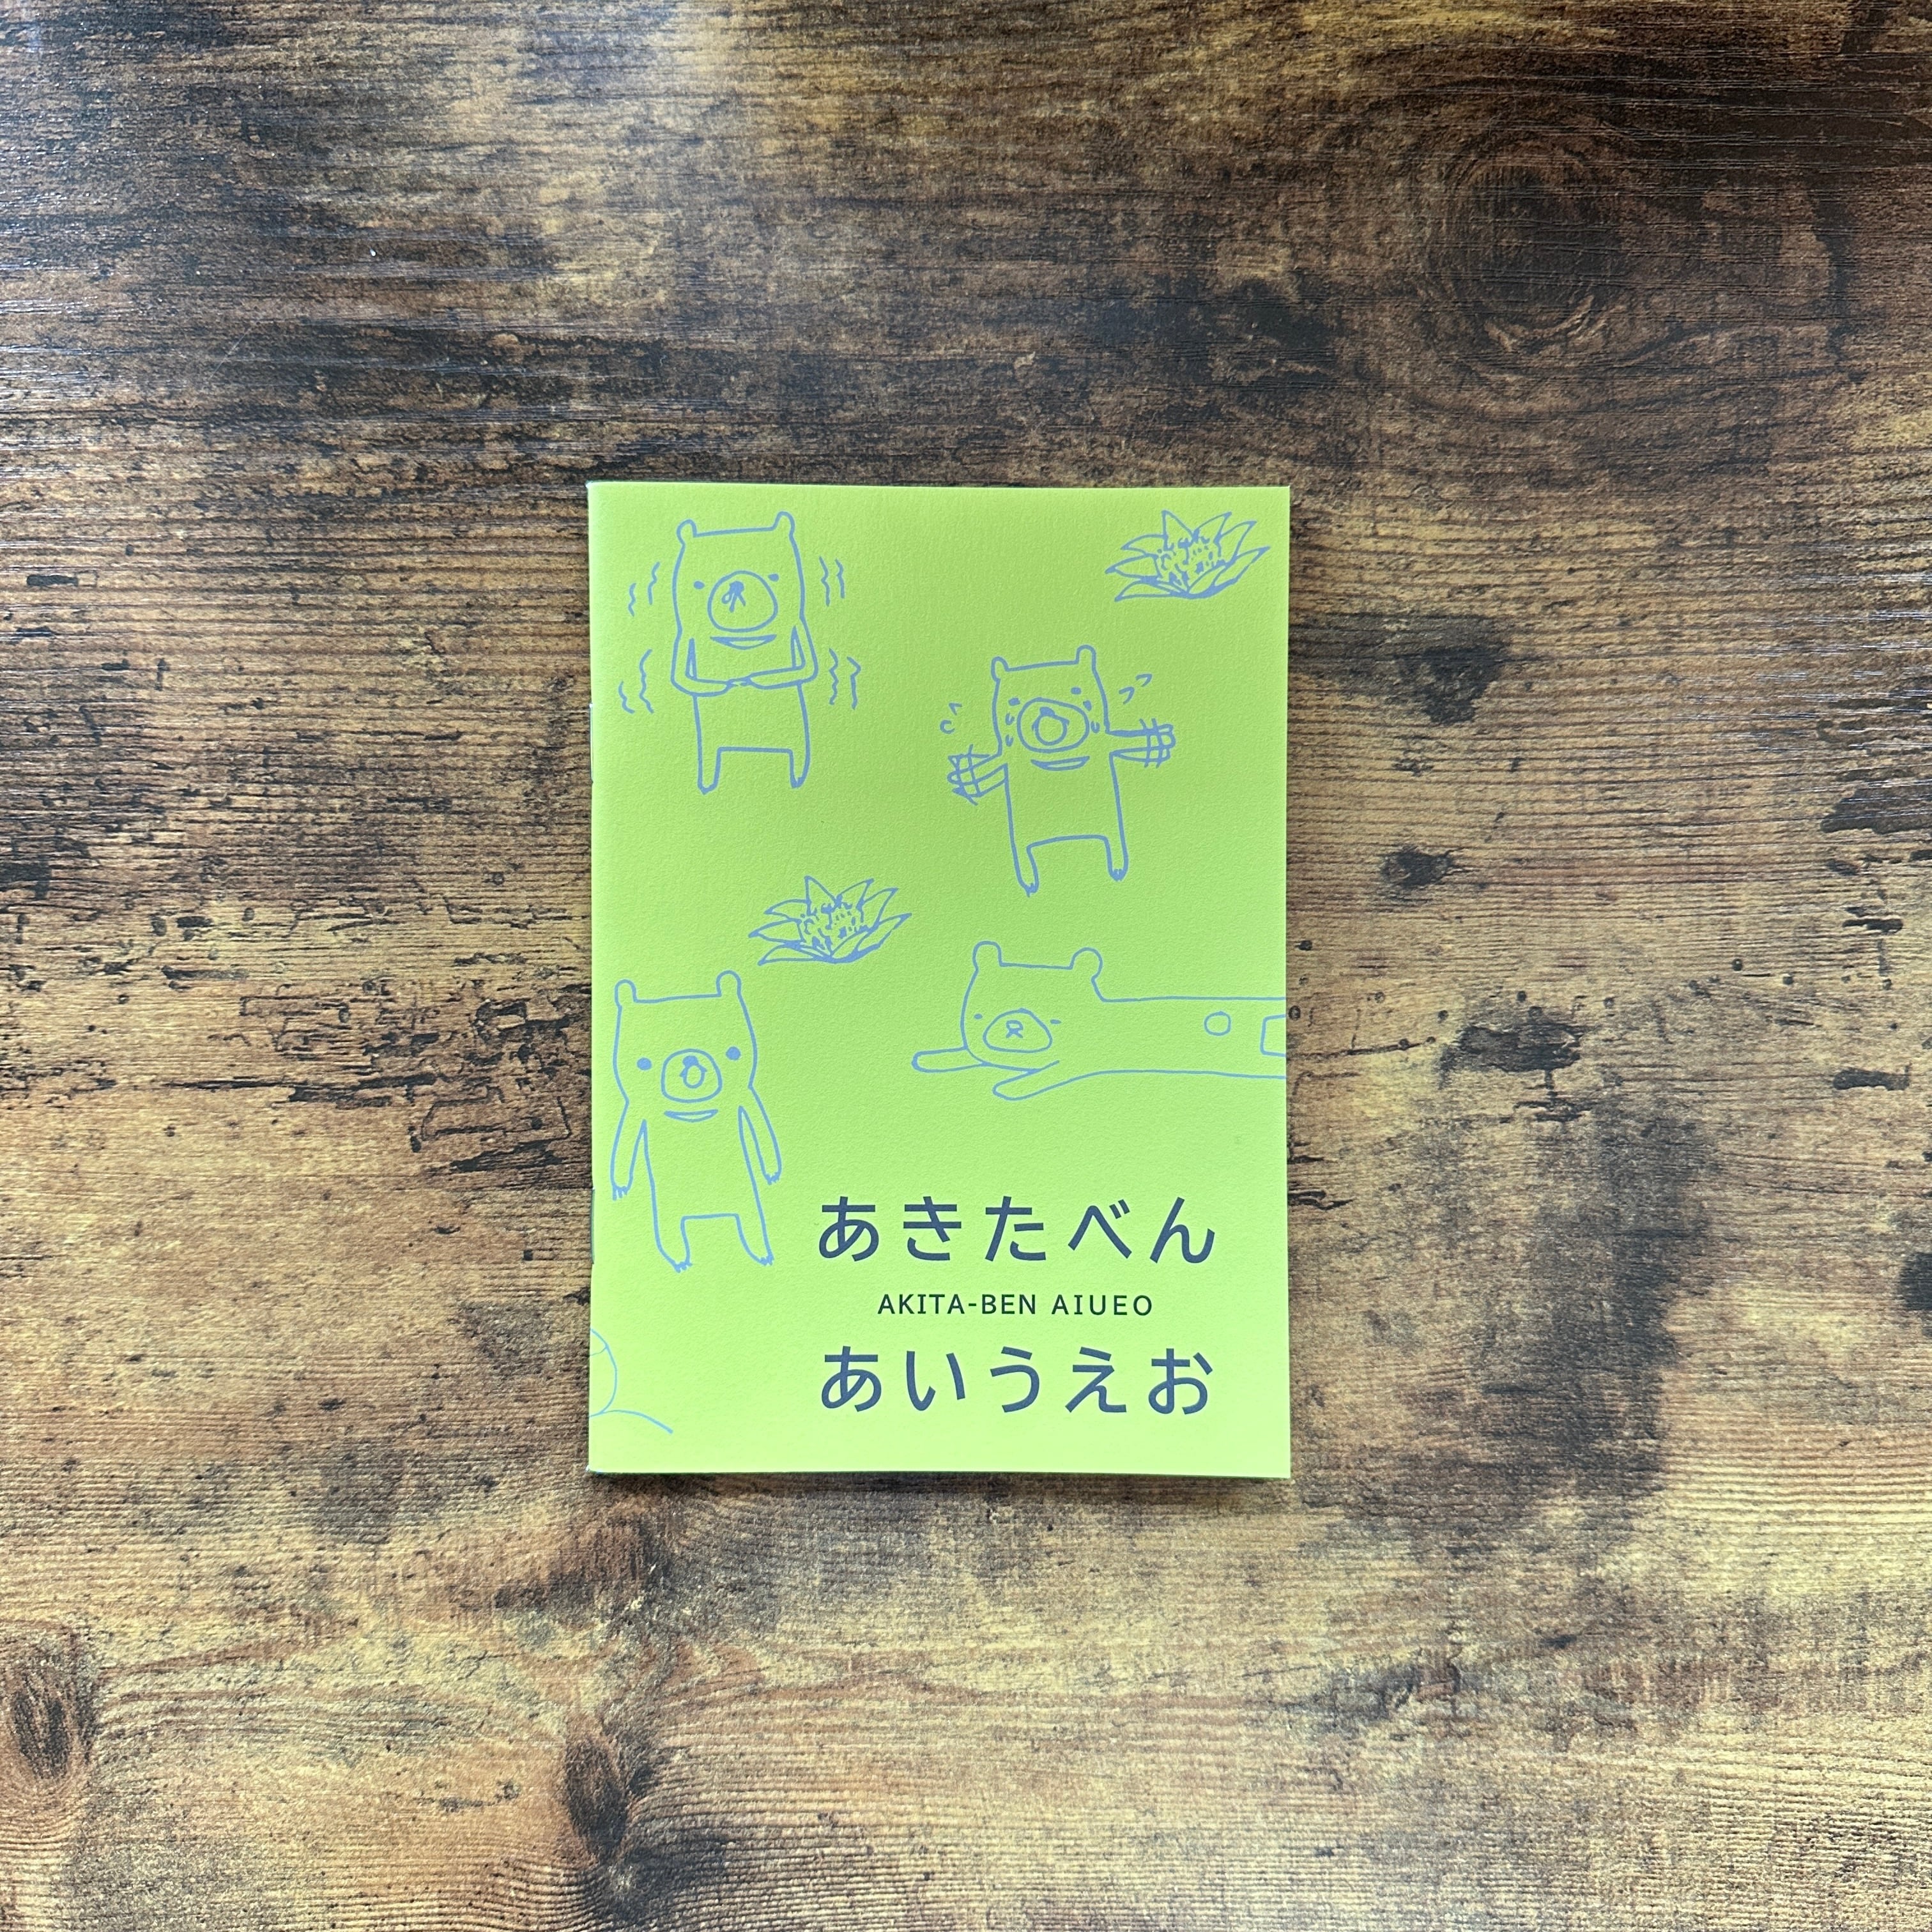 あきたべん
AKITA-BEN AIUEO
あいうえお